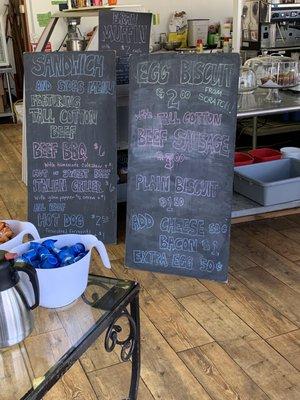 FRESH
MUFFINS
SANDWICH
AND SIDES MENU
FEATURING
TALL COTTON
BEEF
BEEF BBQ
With Home coleslaw
SWEET BEEF
ITALIAN GRILLER
With grilled pepper
HOT DOG $2
EGG BISCUIT
$2.00 FROM
SCRATCH!
W/ TALL COTTON
BEEF SAUSAGE
PLAIN BISCUIT
$1.50
ADD CHEESE 50¢
BACON $1
EXTRA EGG 50¢